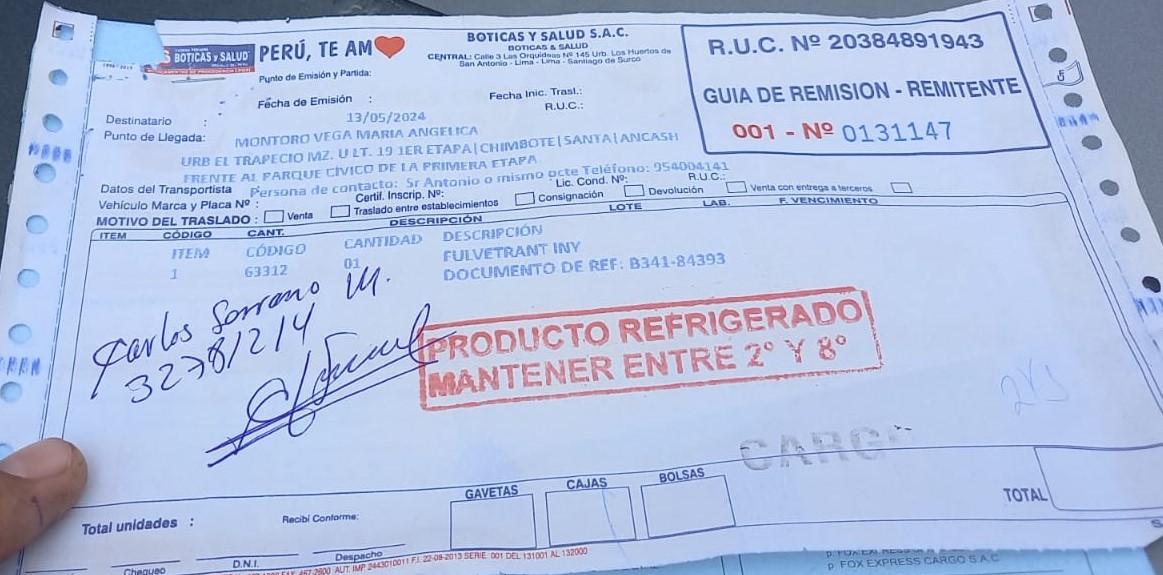 BOTICAS Y SALUD
PERÚ, TE AM
BOTICAS Y SALUD S.A.C.
BOTICAS & SALUD
CENTRAL: Calle 3 Las Orquideas Nº 145 Urb. Los Huertos de
San Antonio - Lima - Lima - Santiago de Surco
R.U.C. Nº 20384891943
GUIA DE REMISION - REMITENTE
001 - Nº 0131147
Punto de Emisión y Partida:
Fecha de Emisión :
Fecha Inic. Trasl.:
R.U.C.:
13/05/2024
Destinatario :
MONTORO VEGA MARIA ANGELICA
Punto de Llegada:
URB EL TRAPECIO MZ. U LT. 19 1ER ETAPA|CHIMBOTE|SANTA|ANCASH
FRENTE AL PARQUE CÍVICO DE LA PRIMERA ETAPA
Datos del Transportista
Persona de contacto: Sr Antonio o mismo pcte Teléfono: 954004141
Vehículo Marca y Placa Nº :
Certif. Inscrip. Nº:
Lic. Cond. Nº:
R.U.C.:
MOTIVO DEL TRASLADO :
Venta
Traslado entre establecimientos
Consignación
Devolución
Venta con entrega a terceros
ITEM CÓDIGO CANT. DESCRIPCIÓN LOTE LAB. F. VENCIMIENTO
ITEM CÓDIGO CANTIDAD DESCRIPCIÓN
1 63312 01 FULVETRANT INY
DOCUMENTO DE REF: B341-84393
Carlos Serrano M.
PRODUCTO REFRIGERADO
MANTENER ENTRE 2° Y 8°
CARGO
GAVETAS
CAJAS
BOLSAS
TOTAL
Total unidades :
Recibí Conforme:
Chequeo
D.N.I.
Despacho
AUT. IMP 2443010011 F.I. 22-08-2013 SERIE 001 DEL 131001 AL 132000
p FOX EXPRESS CARGO S.A.C